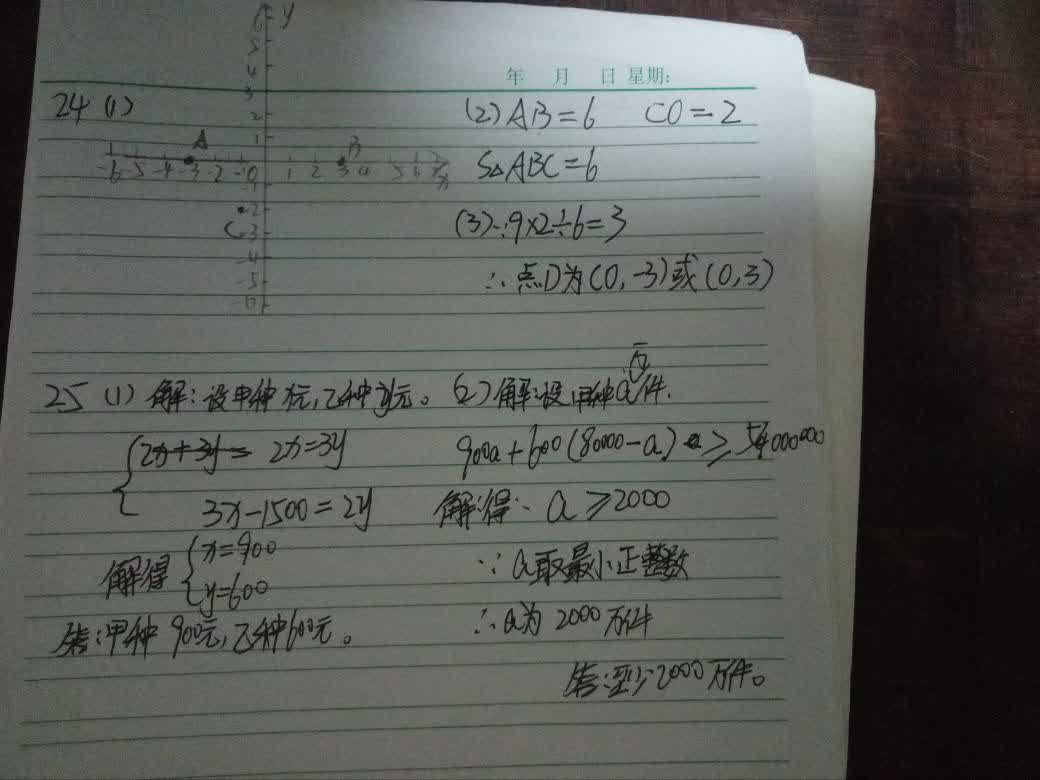 年 月 日 星期:
24 (1)
y
6
5
4
3
2
1
A
B
-6 -5 -4 -3 -2 -1 0 1 2 3 4 5 6 7
x
-2
C -3
-4
-5
-6
(2) AB=6 CO=2
S△ABC=6
(3)∵9×2÷6=3
∴点D为(0,-3)或(0,3)
25 (1) 解:设甲种x元,乙种y元。
2x+3y= 2x=3y
3x-1500=2y
解得 x=900
y=600
答:甲种900元,乙种600元。
(2)解:设甲种a万件.
900a+600(80000-a) ≥ 54000000
解得: a≥2000
∵a取最小正整数
∴a为2000万件
答:至少2000万件。